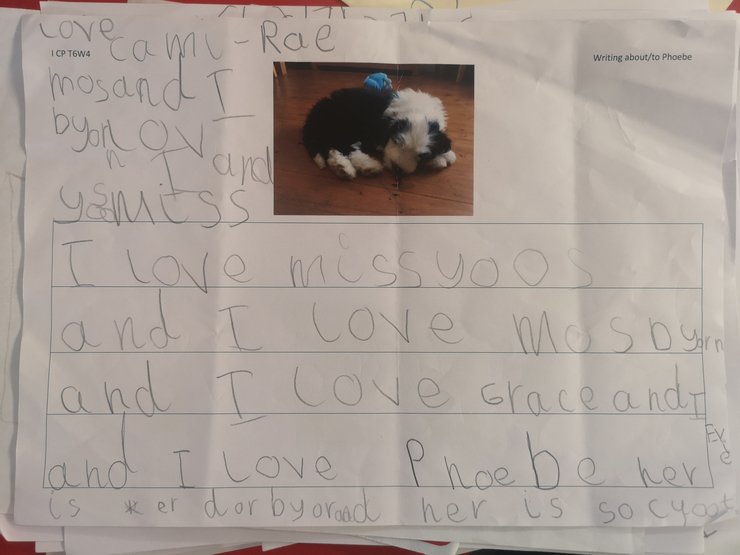 Love
cami-Rae
I CP T6W4
Writing about/to Phoebe
mosand I
byorn Lov
I and
yoosmiss
I Love missyoos
and I Love mosbyorn
and I Love Grace and I
Eve
and I Love Phoebe her
is er dorbyoraad her is so cyoot